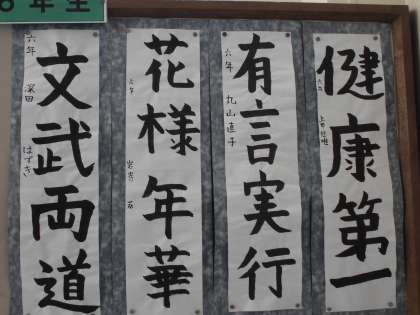 6年生
健康第一
六年
有言実行
六年 丸山直子
花様年華
六年
文武両道
六年 深田はづき